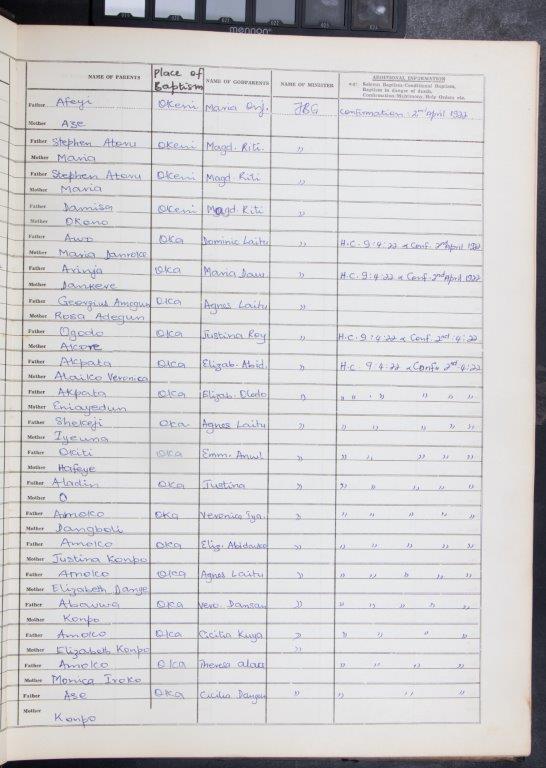 mennon
NAME OF PARENTS Place of Baptism NAME OF GODPARENTS NAME OF MINISTER ADDITIONAL INFORMATION
e.g: Solemn Baptism-Conditional Baptism,
Baptism in danger of death.
Confirmation-Matrimony, Holy Orders etc.
Father Afeyi Okeni Maria Onj. JBG Confirmation: 2nd April 1922
Mother Ase
Father Stephen Atonu Okeni Magd. Riti "
Mother Maria
Father Stephen Atonu Okeni Magd. Riti "
Mother Maria
Father Damisa Okeni Magd. Riti "
Mother Okeno
Father Awo Oka Dominic Laitu " H.C. 9:4:22 & Conf. 2nd April 1922
Mother Maria Danroko
Father Arinja Oka Maria Daus " H.C. 9:4:22 & Conf. 2nd April 1922
Mother Dankeve
Father Georgius Amegun Oka Agnes Laitu "
Mother Rosa Adegun
Father Ogodo Oka Justina Roy " H.C. 9:4:22 & Conf. 2nd:4:22
Mother Akore
Father Akpata Oka Elizab. Abid. " H.C. 9:4:22 & Conf. 2nd:4:22
Mother Alaiko Veronica
Father Akpata Oka Elizab. Ododo " " " " " " "
Mother Eniayedun
Father Shekeji Oka Agnes Laitu " " " " " "
Mother Iyeuna
Father Okiti Oka Emm. Anwl " " " " " "
Mother Hafeye
Father Aladin Oka Justina " " " " " "
Mother O
Father Amoko Oka Veronica Iya. " " " " "
Mother Dangboli
Father Amoko Oka Eliz. Abidauko " " " " " "
Mother Justina Konpo
Father Amoko Oka Agnes Laitu " " " " " "
Mother Elizabeth Dange
Father Abawwa Oka Vero. Dansan " " " " " "
Mother Konpo
Father Amoko Oka Cicilia Kuya " " " " "
Mother Elizabeth Konpo "
Father Amoko Oka Theresa alaa " " " " "
Mother Monica Iroko
Father Ase Oka Cicilia Dangen " " " "
Mother Konpo